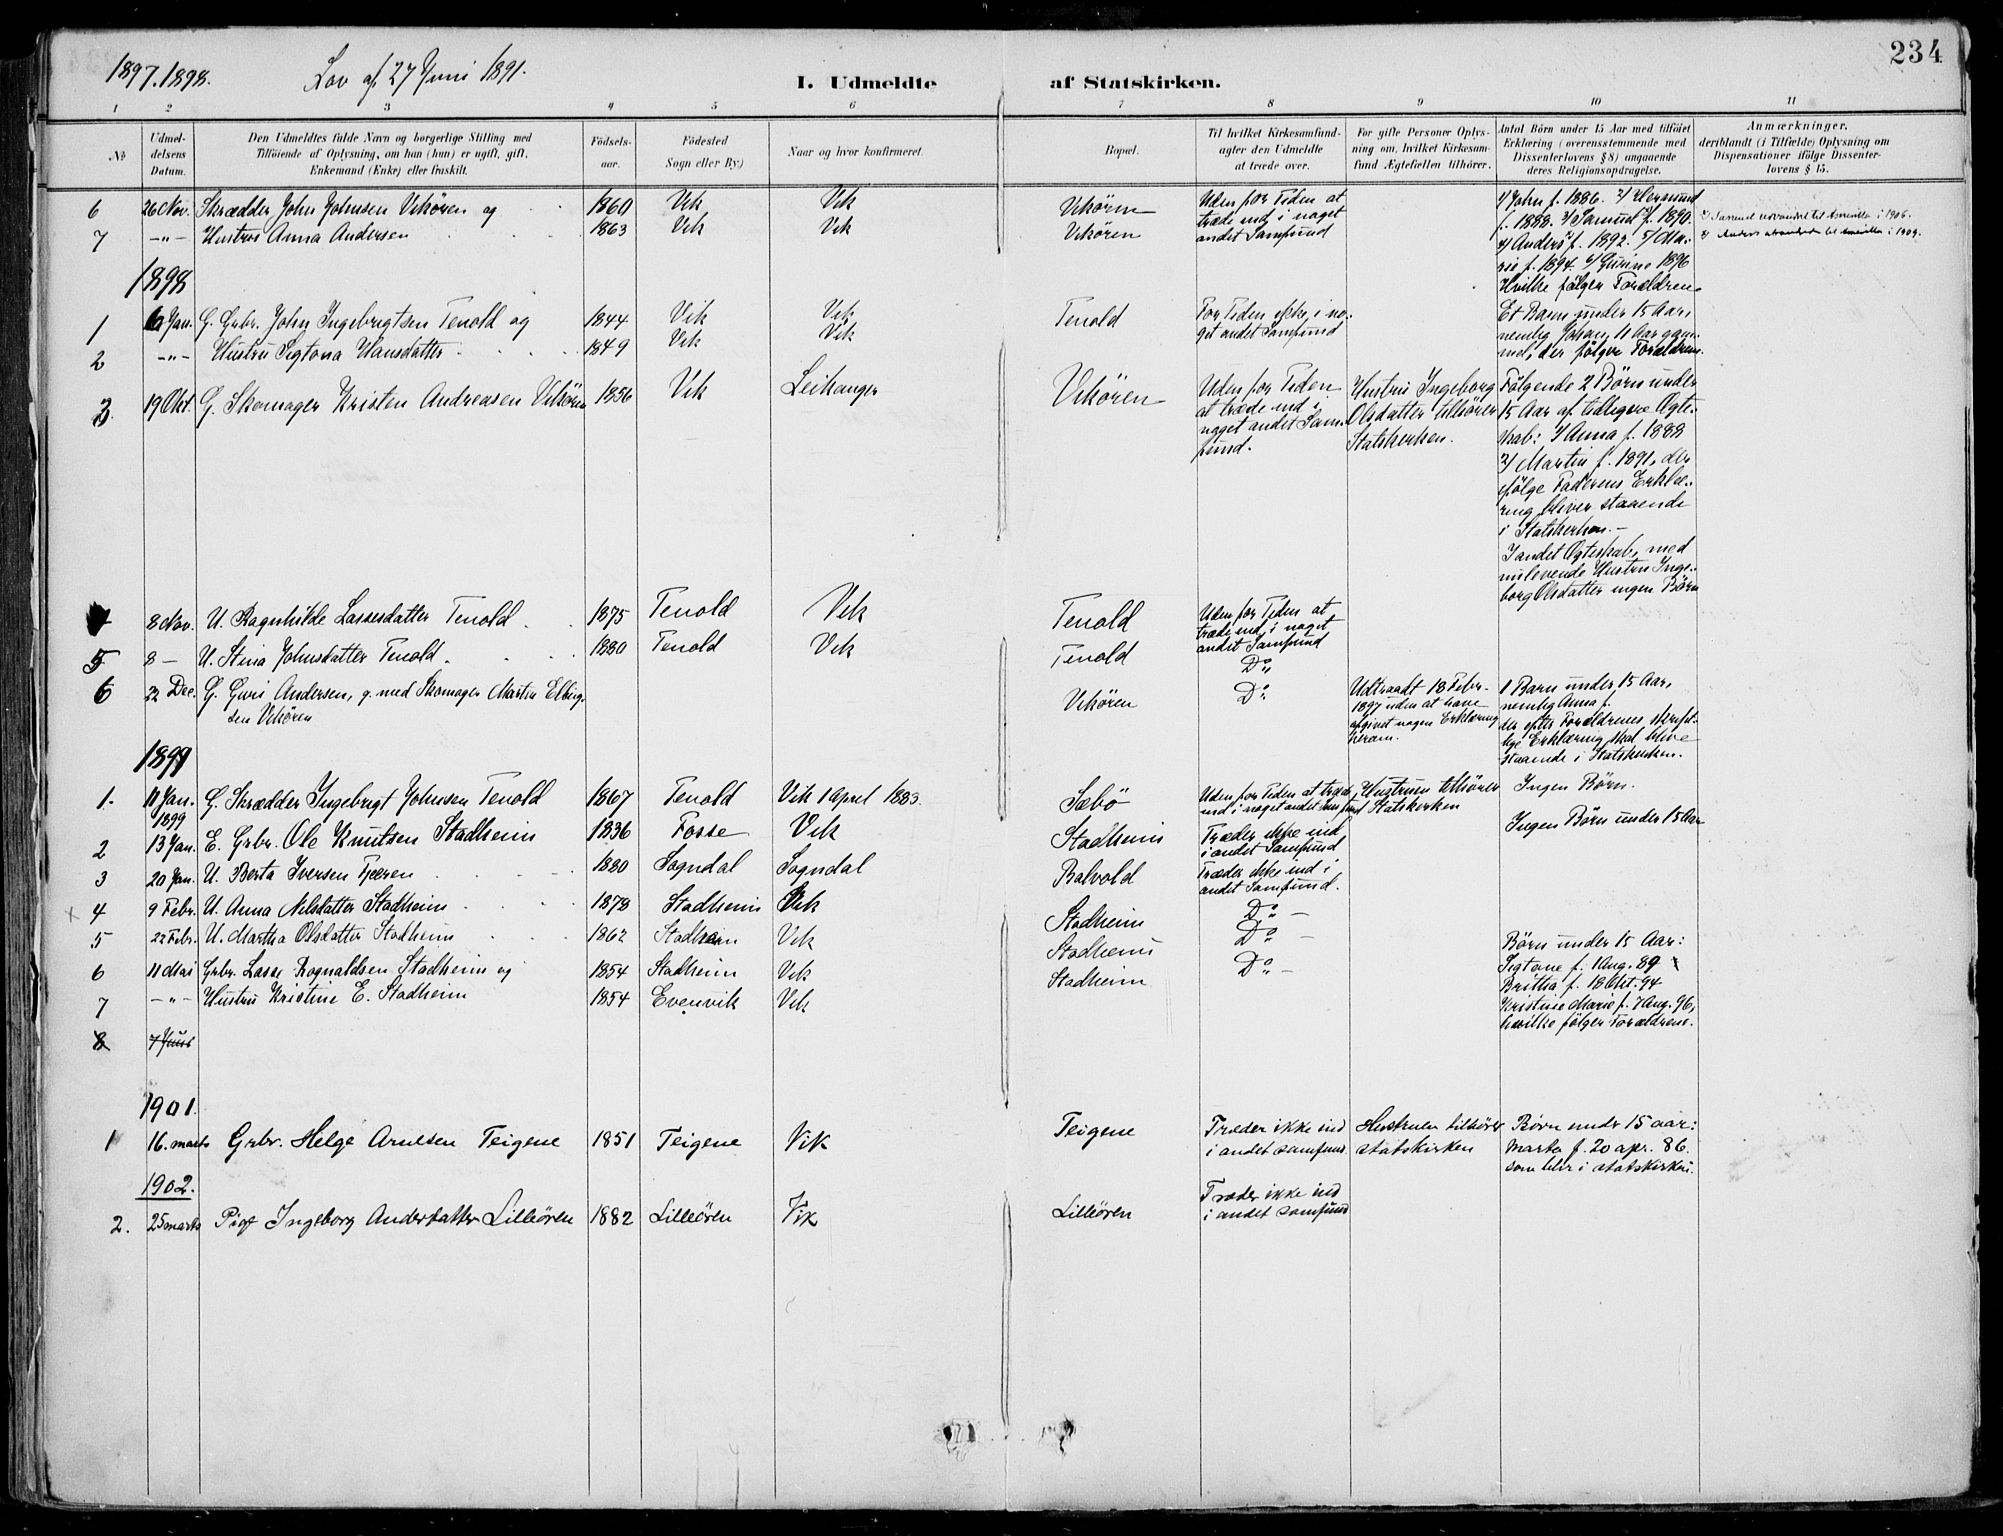 1897.1898. Lov af 27 Juni 1891. I. Udmeldte af Statskirken. 234
1 2 3 4 5 6 7 8 9 10 11
№
Udmeldelsens Datum.
Den Udmeldtes fulde Navn og borgerlige Stilling med
Tilføiende af Oplysning, om han (hun) er ugift, gift,
Enkemand (Enke) eller fraskilt.
Födselsaar.
Födested
Sogn eller By.)
Naar og hvor konfirmeret.
Bopæl.
Til hvilket Kirkesamfund-
agter den Udmeldte
at træde over.
For gifte Personer Oplys-
ning om, hvilket Kirkesam-
fund Ægtefællen tilhører.
Antal Börn under 15 Aar med tilföiet
Erklæring (overensstemmende med
Dissenterlovens § 8) angaaende
deres Religionsopdragelse.
Anmærkninger,
deriblandt (i Tilfælde) Oplysning om
Dispensationer ifölge Dissenter-
lovens § 15.
6 26 Nov. Skrædder John Johnsen Vikören og 1860 Vik Vik Vikören
7 -"- Hustru Anna Andersen 1863 Vik Vik Vikören
Uden for Tiden at
træde ind i noget
andet Samfund
1/ John f. 1886. 2/
f. 1888. 3/ Samuel f. 1890.
4/ Anders f. 1892. 5/ Ma-
rie f. 1894. 6/ Gurine 1896
Hvilke fölger Forældren.
3) Samuel udvandret til Amerika i 1906.
4) Anders utvandret til Amerika i 1909.
1898
1 Jan. G. Grbr. John Ingebrigtsen Tenold og 1844 Vik Vik Tenold
2 -"- Hustru Sigtona Hansdatter 1849 Vik Vik
For Tiden ikke i no-
get andet Samfund
Et Barn under 15 Aar,
nemlig Johan, 11 Aar gam-
mel, der fölger Forældren.
3. 19 Okt. G. Skomager Kristen Andreasen Vikören 1856 Vik Leikanger Vikören
Uden for Tiden
at træde ind i
noget andet Sam-
fund.
Hustru Ingeborg
Olsdatter tilhörer
Statskirken.
Fölgende 2 Börn under
15 Aar af tidligere Ægte-
skab: 1/ Anna f. 1888
2/ Martin f. 1891, der
fölge Faderens Erklæ-
ring bliver staaende
i Statskirken.-
I andet Ægteskab, med
nulevende Hustru Inge-
borg Olsdatter ingen Börn
4 8 Nov. U. Ragnhilde Lassesdatter Tenold. 1875 Tenold Vik Tenold
Uden for Tiden at
træde ind i noget
andet Samfund
5 8 - U. Stina Johnsdatter Tenold. 1880 Tenold Vik Tenold Do
6 22 Dec. G. Guri Andersen, g. med Skomager Martin Elling-
sen Vikören Vikören Do
Udtraadt 18 Febr.
1897 uden at have
afgivet nogen Erklæring
herom.
1 Barn under 15 Aar,
nemlig Anna f.
der efter Forældrenes skrift-
lige Erklæring skal blive
staaende i Statskirken.
1899
1. 11 Jan. 1899 G. Skrædder Ingebrigt Johnsen Tenold 1867 Tenold Vik 1 April 1883. Sæbö
Uden for Tiden at træde
ind i noget andet Samfund
Hustruen tilhörer
Statskirken
Ingen Börn.
2 13 Jan. E. Grbr. Ole Knutsen Stadheim 1836 Fosse Vik Stadheim
Træder ikke ind
i andet Samfund
Ingen Börn under 15 Aar
3 20 Jan. U. Berta Iversen Fjæren 1880 Sogndal Sogndal Balvold
Træder ikke ind i
andet Samfund.
x 4 9 Febr. U. Anna Nilsdatter Stadheim 1878 Stadheim Vik Stadheim Do -
5 22 Febr. U. Martha Olsdatter Stadheim 1862 Stadheim Vik Stadheim Do -
6 11 Mai Grbr. Lasse Rognaldsen Stadheim og 1854 Stadheim Vik Stadheim Do -
7 -"- Hustru Kristine E. Stadheim 1854 Evenvik Vik
Börn under 15 Aar:
Sigtone f. 1 Aug. 89
Britha f. 18 Okt. 94
Kristine Marie f. 7 Aug. 96,
hvilke fölger Forældrene.
8 7 Juni
1901.
1 16. marts Grbr. Helge Arnesen Teigene 1851 Teigene Vik Teigene
Træder ikke ind
i andet samfund.
Hustruen tilhörer
statskirken
Børn under 15 aar:
Marta f. 20 apr. 86.
som blir i statskirken.
1902.
2. 25 marts Pige Ingeborg Andersdatter Lilleören 1882 Lilleören Vik Lilleören
Træder ikke ind
i andet samfund